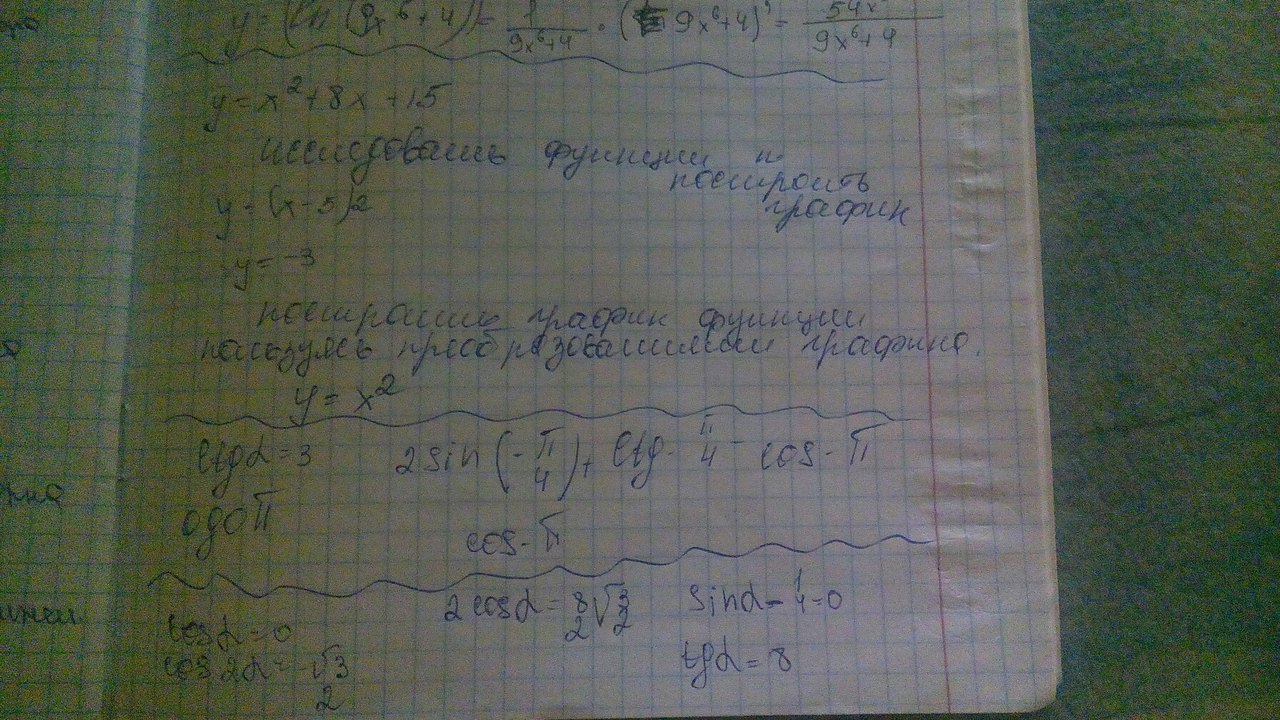 y = (ln (9x⁶+4)) = 1/(9x⁶+4) · (9x⁶+4)' = 54x/(9x⁶+4)
y = x² + 8x + 15
исследовать функции и
построить
y = (x-5)2
график
y = -3
построить график функции
пользуясь преобразованиями графика.
y = x²
ctgα = 3 2 sin (-π/4) + ctg - π/4 - cos - π
0 до π
cos - π
2 cosα = 8/2 √3/2 sinα - 1/4 = 0
cosα = 0
tgα = 8
cos 2α = -√3/2